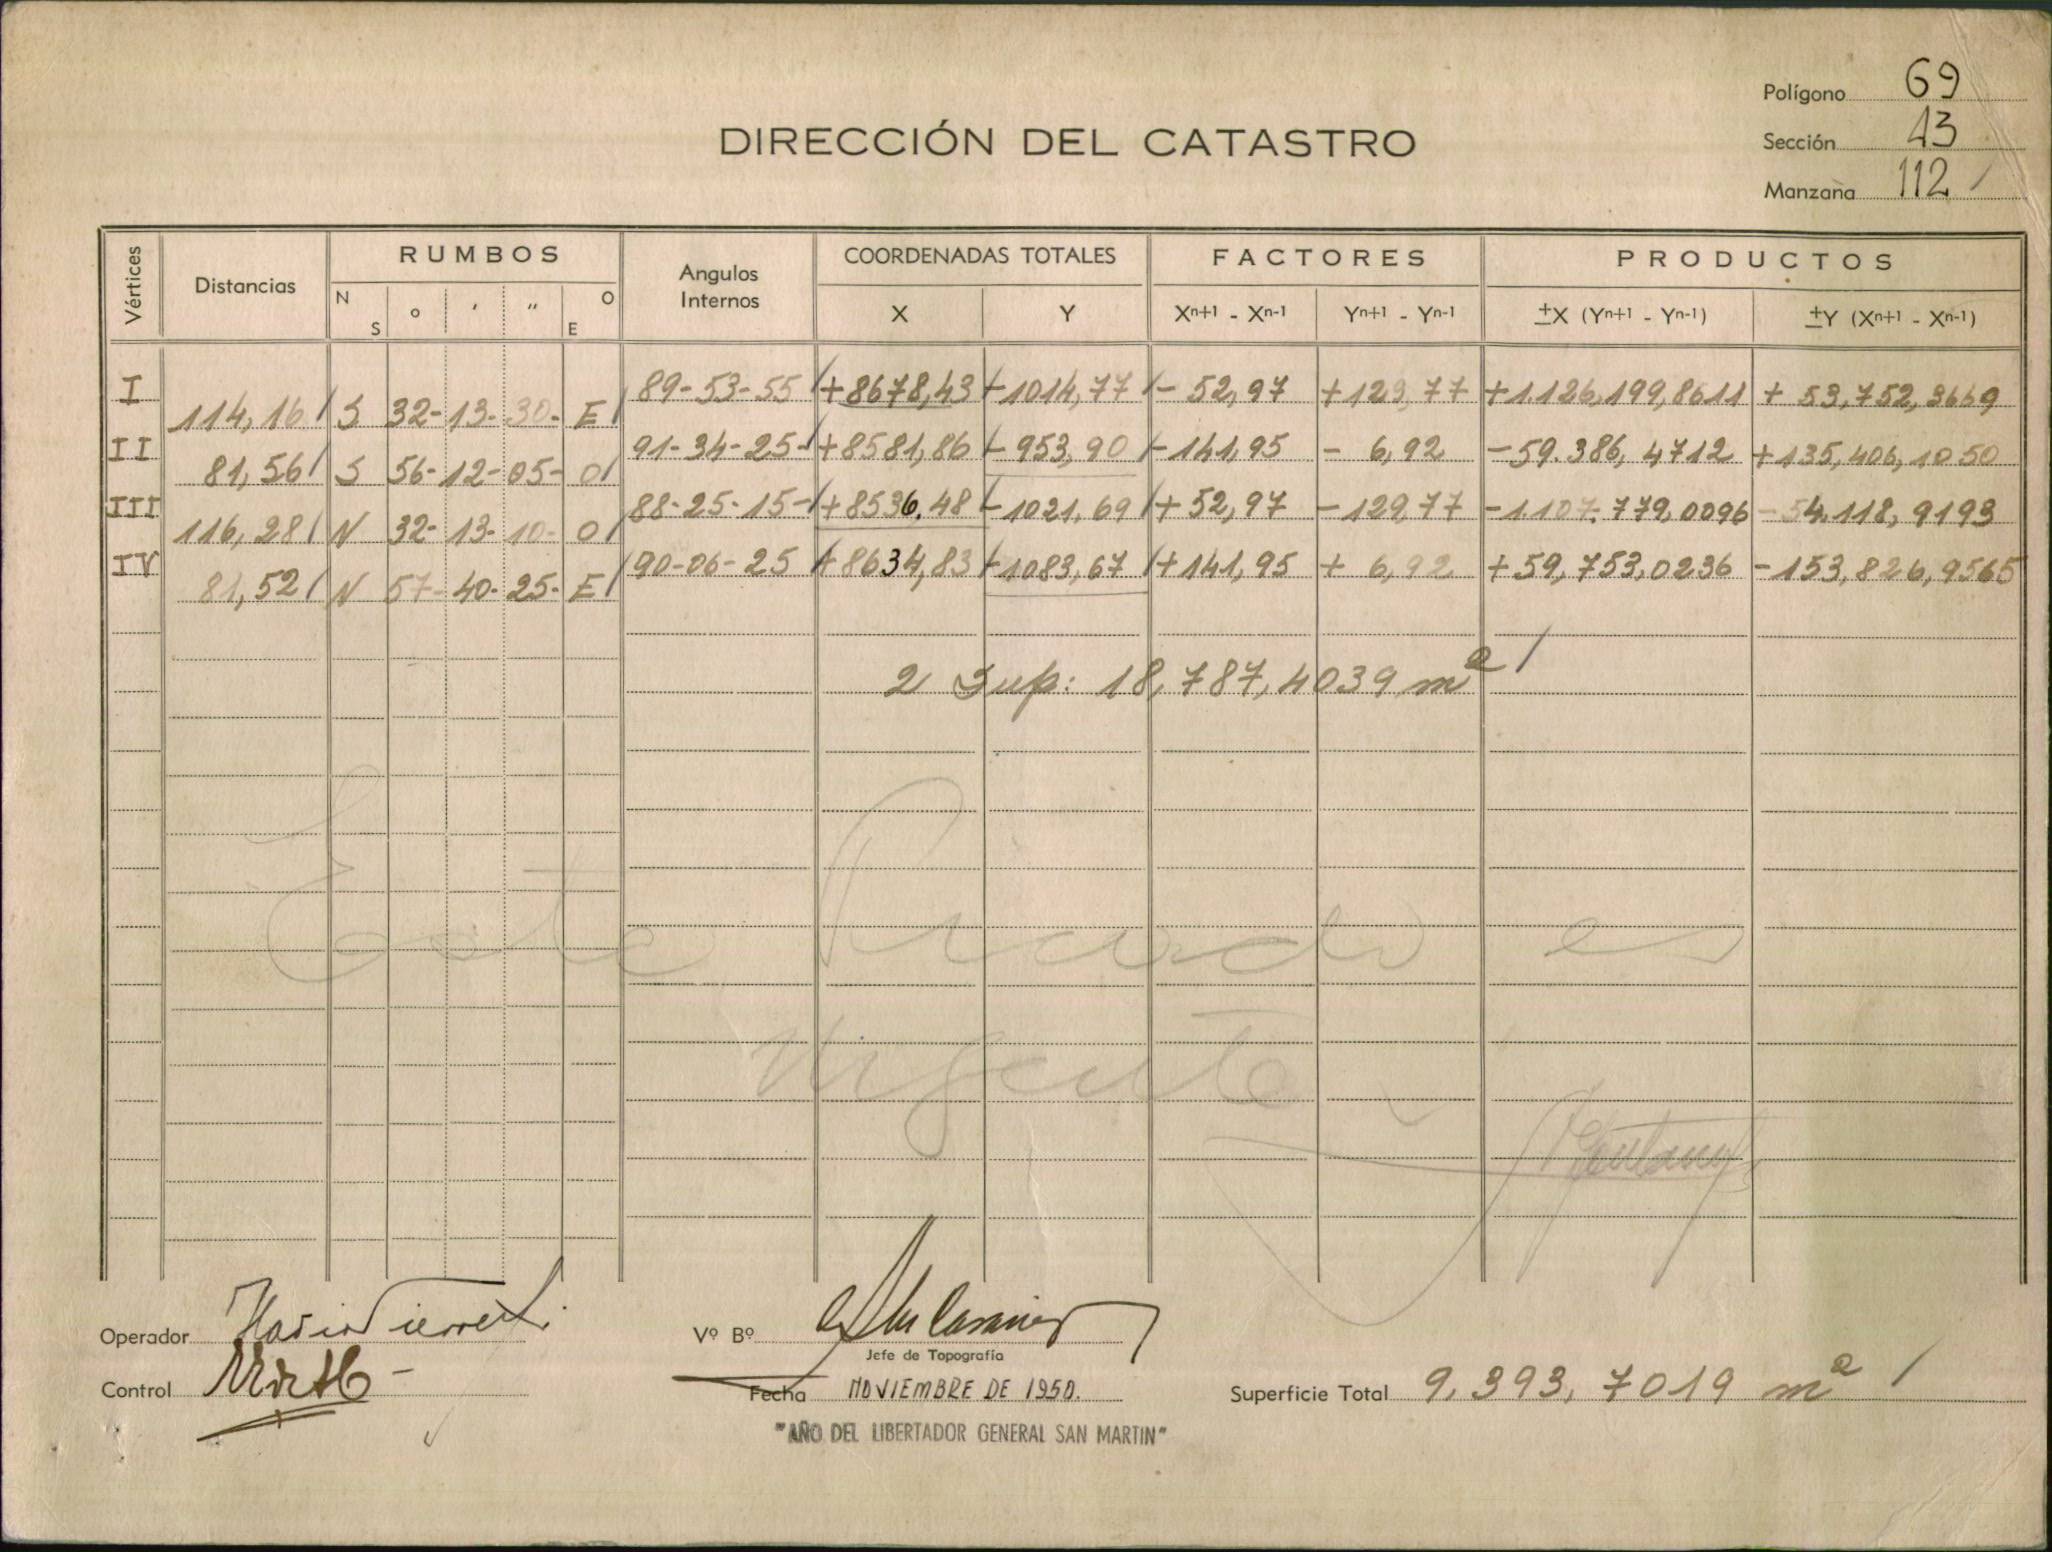 Polígono 69
DIRECCIÓN DEL CATASTRO
Sección 43
Manzana 112 /
Vértices Distancias RUMBOS Angulos Internos COORDENADAS TOTALES FACTORES PRODUCTOS
N S ° ' " O E X Y Xn+1 - Xn-1 Yn+1 - Yn-1 ±X (Yn+1 - Yn-1) ±Y (Xn+1 - Xn-1)
I 89-53-55 / +8678,43 -1014,77 / - 52,97 +129,77 +1.126,199,8611 + 53,752,3669
114,16 / S 32- 13- 30- E /
II 91-34-25- / +8581,86 - 953,90 / -141,95 - 6,92 -59.386,4712 +135,406,1050
81,56 / S 56- 12- 05- O /
III 88-25-15- / +8536,48 -1021,69 / +52,97 -129,77 -1.107.779,0096 -54.118,9193
116,28 / N 32- 13- 10- O /
IV 90-06-25 / +8634,83 -1083,67 / +141,95 + 6,92 +59,753,0236 -153,826,9565
81,52 / N 57- 40- 25- E /
2 Sup: 18,787,4039 m2 /
Este Picado es
vigente
Operador
Vº Bº
Jefe de Topografía
Control
Fecha NOVIEMBRE DE 1950.
Superficie Total 9.393,7019 m2 /
"AÑO DEL LIBERTADOR GENERAL SAN MARTIN"